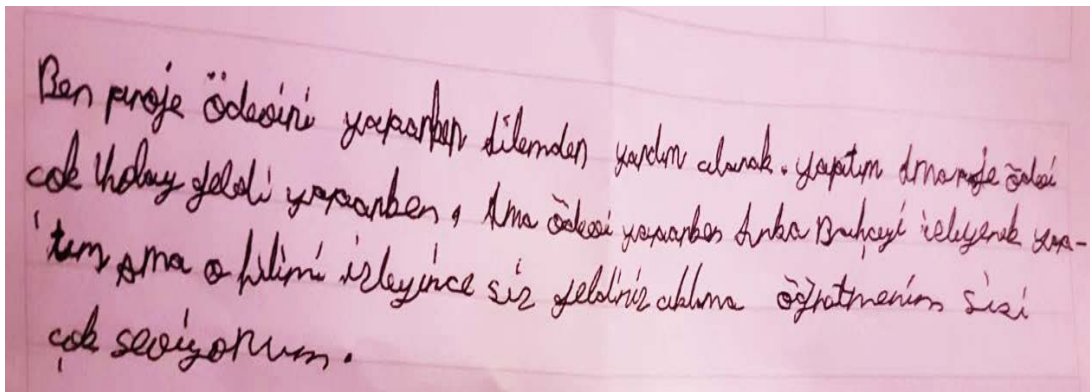 Ben proje ödevini yaparken Ailemden yardım alarak. yaptım Ama proje ödevi
çok kolay geldi yaparken, Ama ödevi yaparken Anka Bahçeyi izleyerek yap-
tım Ama o filimi izleyince siz geldiniz aklıma öğretmenim sizi
çok seviyorum.